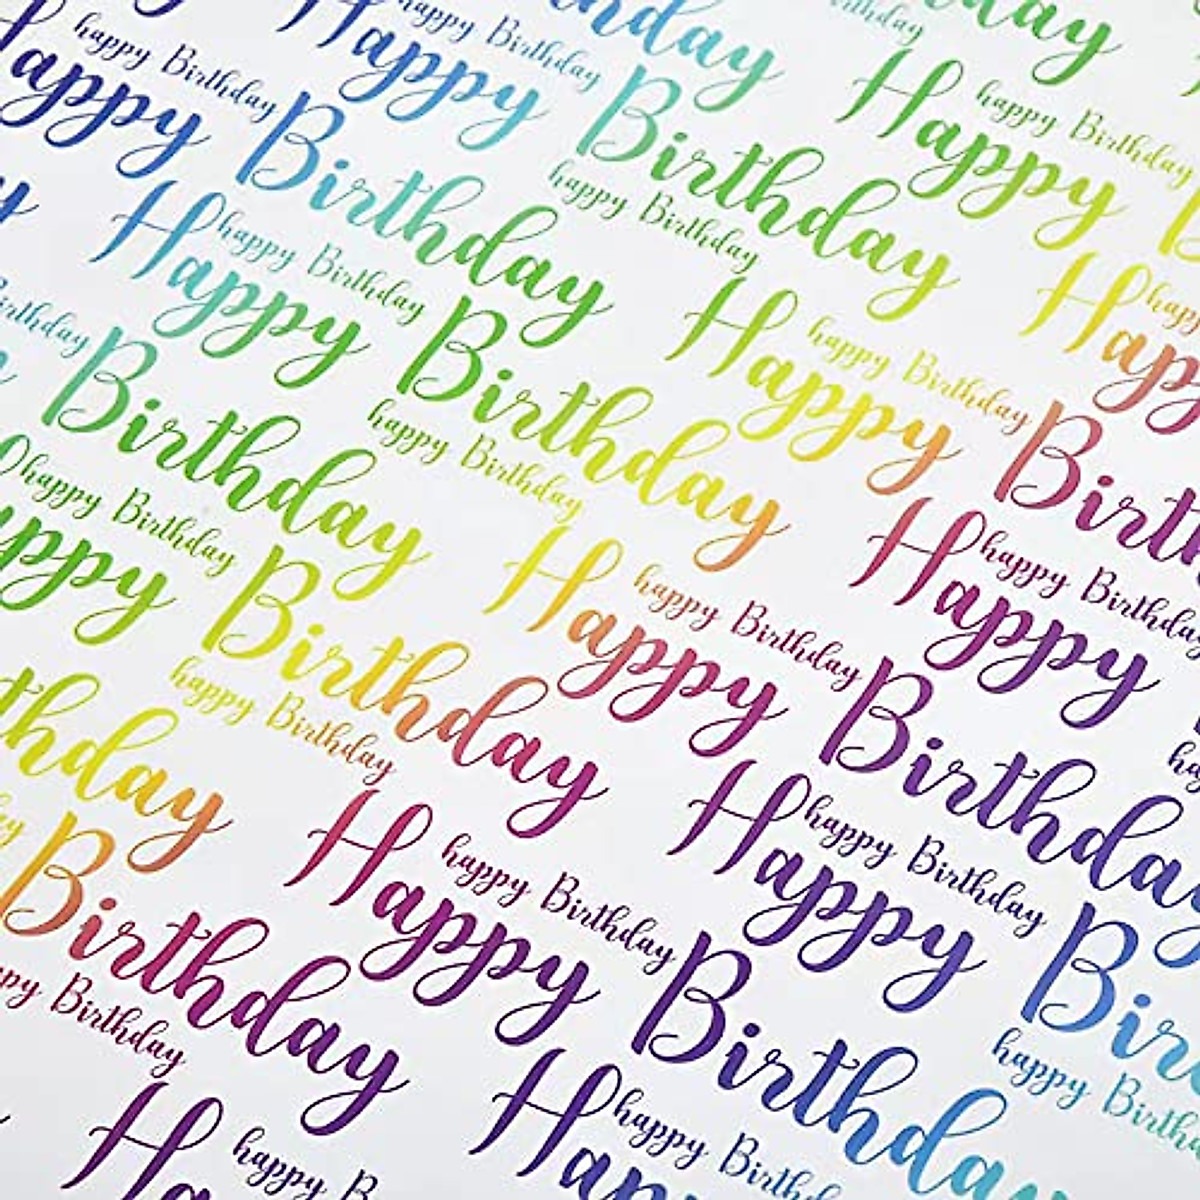 happy Birthday
Birthday
happy Birthday
Happy Birthday
Happy Birthday
happy Birthday
happy Birthday
Happy
happy Birthday
Happy Birthday
happy Birthday
Happy Birthday
happy Birthday
Happy Birthday
happy Birthday
Birthday
happy Birthday
Happy Birthday
happy Birthday
Happy Birthday
happy Birthday
Happy Birthday
happy Birthday
Happy
happy Birthday
Birthday
happy Birthday
Happy Birthday
happy Birthday
Happy
happy Birthday
Happy